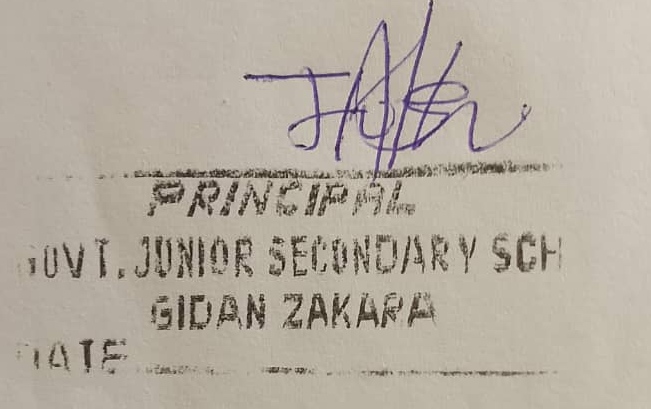 PRINCIPAL
GOVT. JUNIOR SECONDARY SCH
GIDAN ZAKARA
DATE